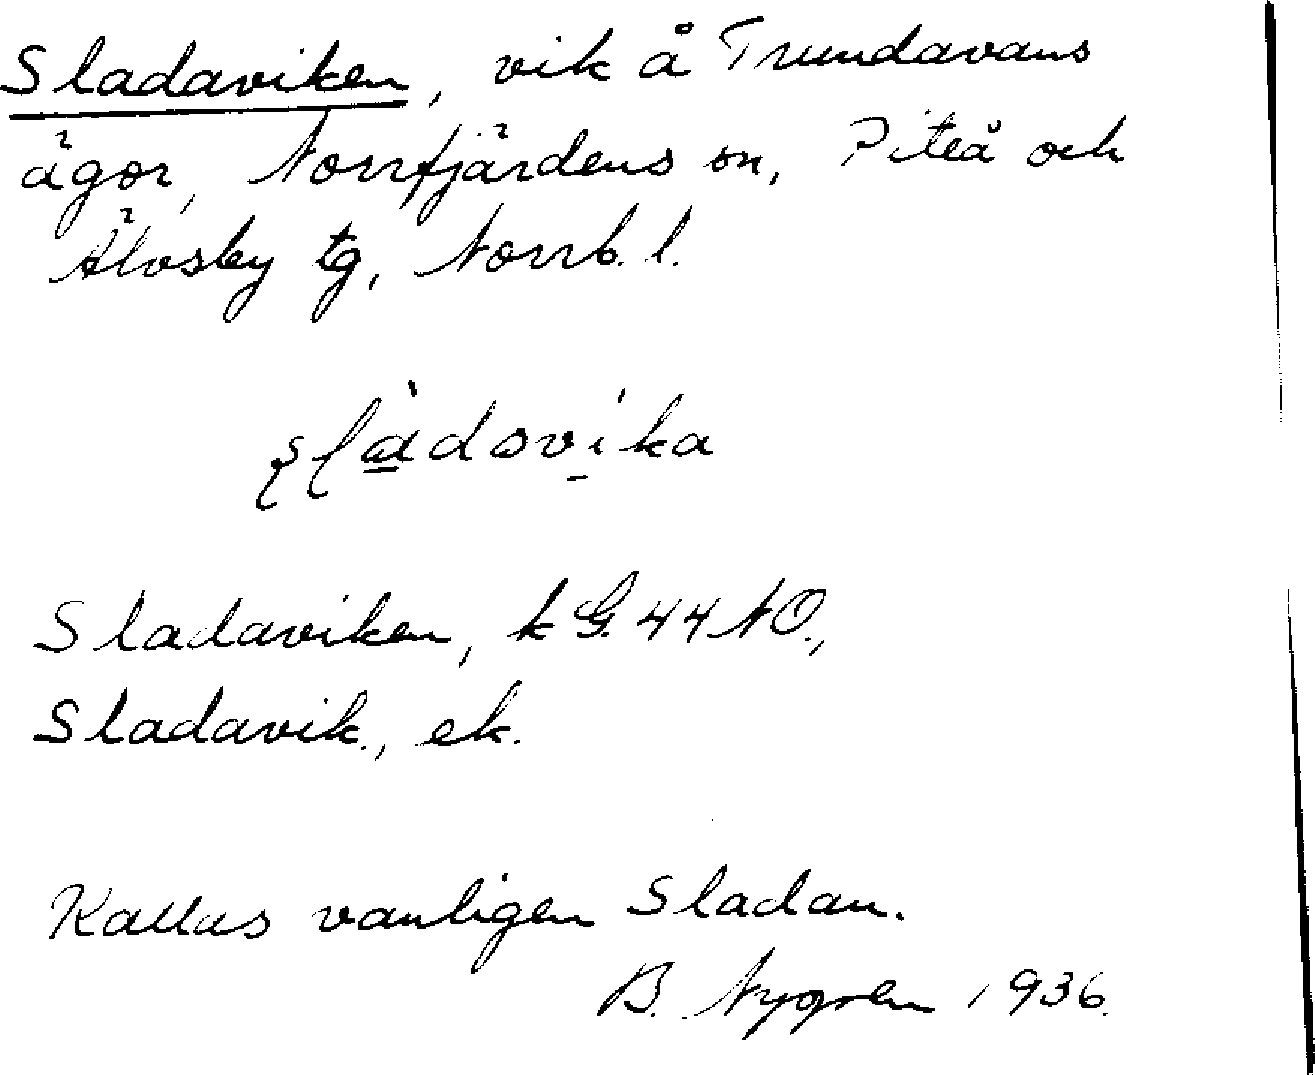 Sladaviken, vik å Trundavans
ägor, Norrfjärdens sn, Piteå och
Älvsby tg, Norrb. l.
Sladaviken, k G. 44 NO.,
Sladavik., ek.
Kallas vanligen Sladan.
B. Nygren 1936.